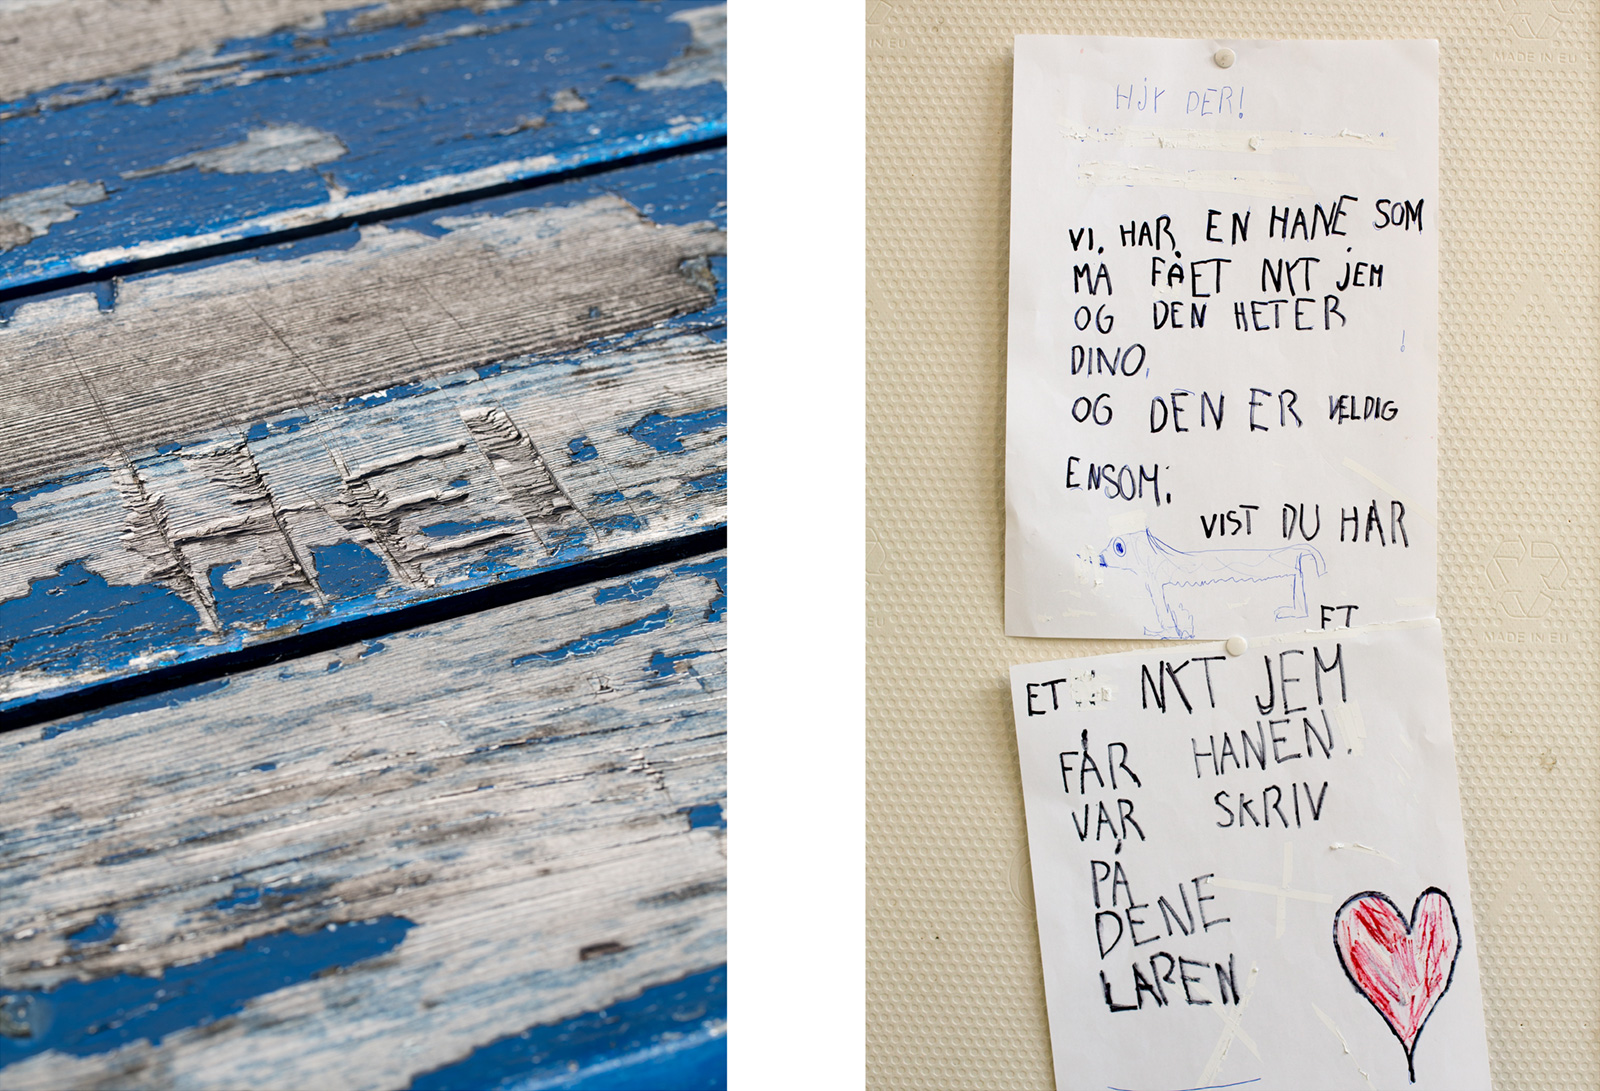 HEI
HJY DER!
VI. HAR EN HANE SOM
MÅ FÅET NYT JEM
OG DEN HETER
DINO.
OG DEN ER VELDIG
ENSOM.
VIST DU HAR
ET
ET NYT JEM
FÅR HANEN.
VAR SKRIV
PÅ
DENE
LAPEN
MADE IN EU
MADE IN EU